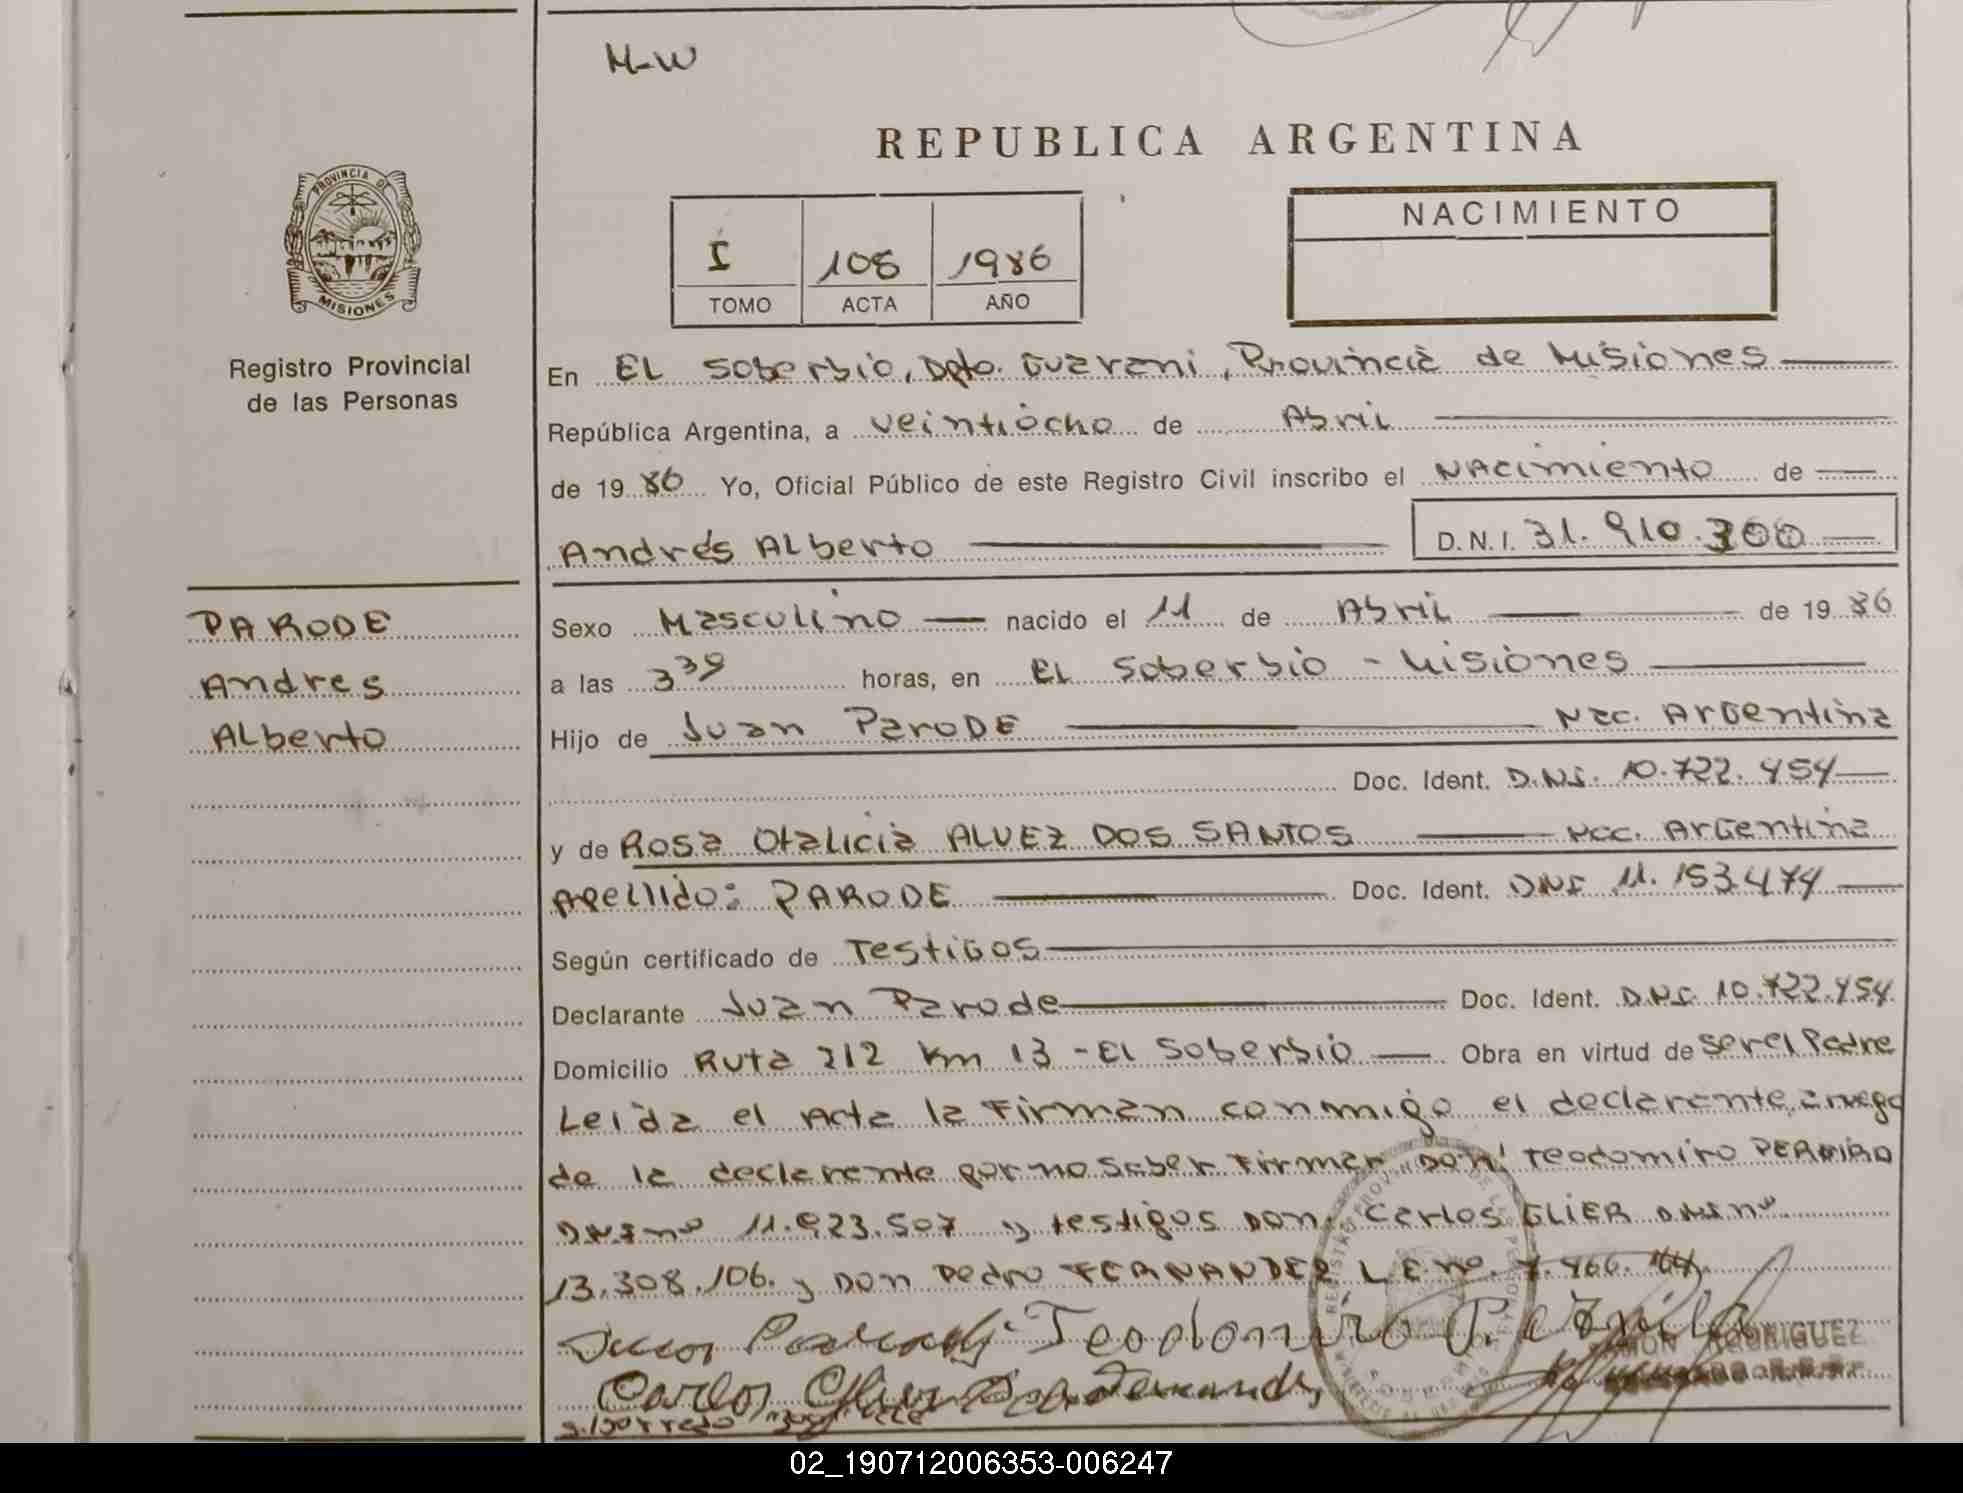 M-W
REPUBLICA ARGENTINA
PROVINCIA DE
MISIONES
Registro Provincial
de las Personas
I 108 1986
TOMO ACTA AÑO
NACIMIENTO
En EL Soberbio, Dpto. Guarani, Provincia de Misiones
República Argentina, a veintiocho de Abril
de 1986 Yo, Oficial Público de este Registro Civil inscribo el Nacimiento de
Andrés Alberto D.N.I. 31.910.300
PARODE
Andres
Alberto
Sexo Masculino nacido el 11 de Abril de 1986
a las 3 39 horas, en EL Soberbio - Misiones
Hijo de Juan Parode Nac. Argentina
Doc. Ident. D.N.I. 10.722.454
y de Rosa Otalicia ALVEZ DOS SANTOS Nac. Argentina
Apellido: PARODE Doc. Ident. DNI 11.153.474
Según certificado de Testigos
Declarante Juan Parode Doc. Ident. D.N.I. 10.722.454
Domicilio Ruta 212 Km 13 - El Soberbio Obra en virtud de ser el Padre
Leida el Acta la Firman conmigo el declarante, a ruego
de la declarante por no saber Firmar, Don Teodomiro
DNI nº 11.923.507 y testigos Don Carlos GLIER DNI nº
13.308.106. y Don Pedro FERNANDEZ L.E. nº. 7.466.
Juan Teodomiro
Carlos Glier Fernandez
RODRIGUEZ
02_190712006353-006247